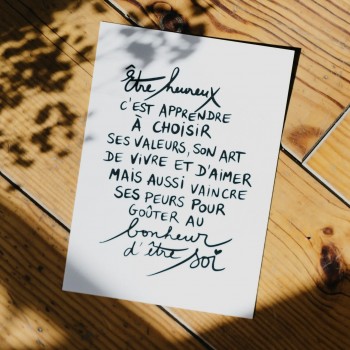 être heureux
C'EST APPRENDRE
À CHOISIR
SES VALEURS, SON ART
DE VIVRE ET D'AIMER
MAIS AUSSI VAINCRE
SES PEURS POUR
GOÛTER AU
bonheur
d'être soi